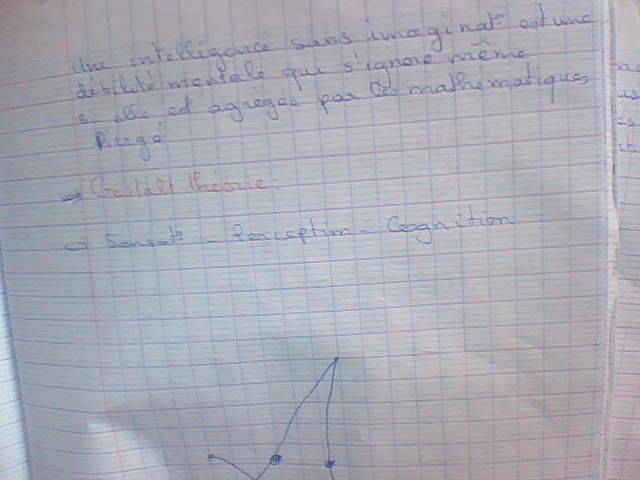 Une intelligence sans imaginat° est une
débilité mentale qui s'ignore même
si elle est agrégée par les mathématiques
→ Gestalt théorie.
→ Sensat° - Perception - Cognition